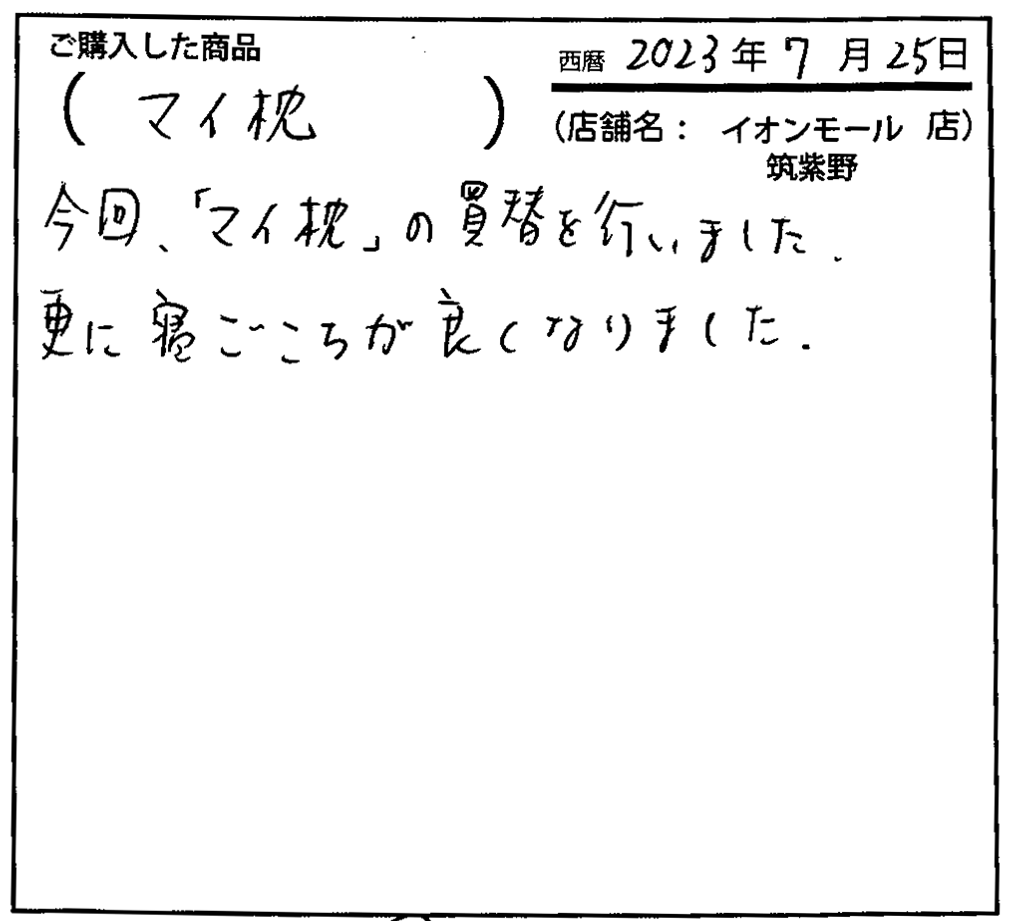 ご購入した商品
西暦 2023年 7月 25日
( マイ枕 )
(店舗名： イオンモール 店)
筑紫野
今回、「マイ枕」の買替を行いました.
更に寝ごこちが良くなりました.